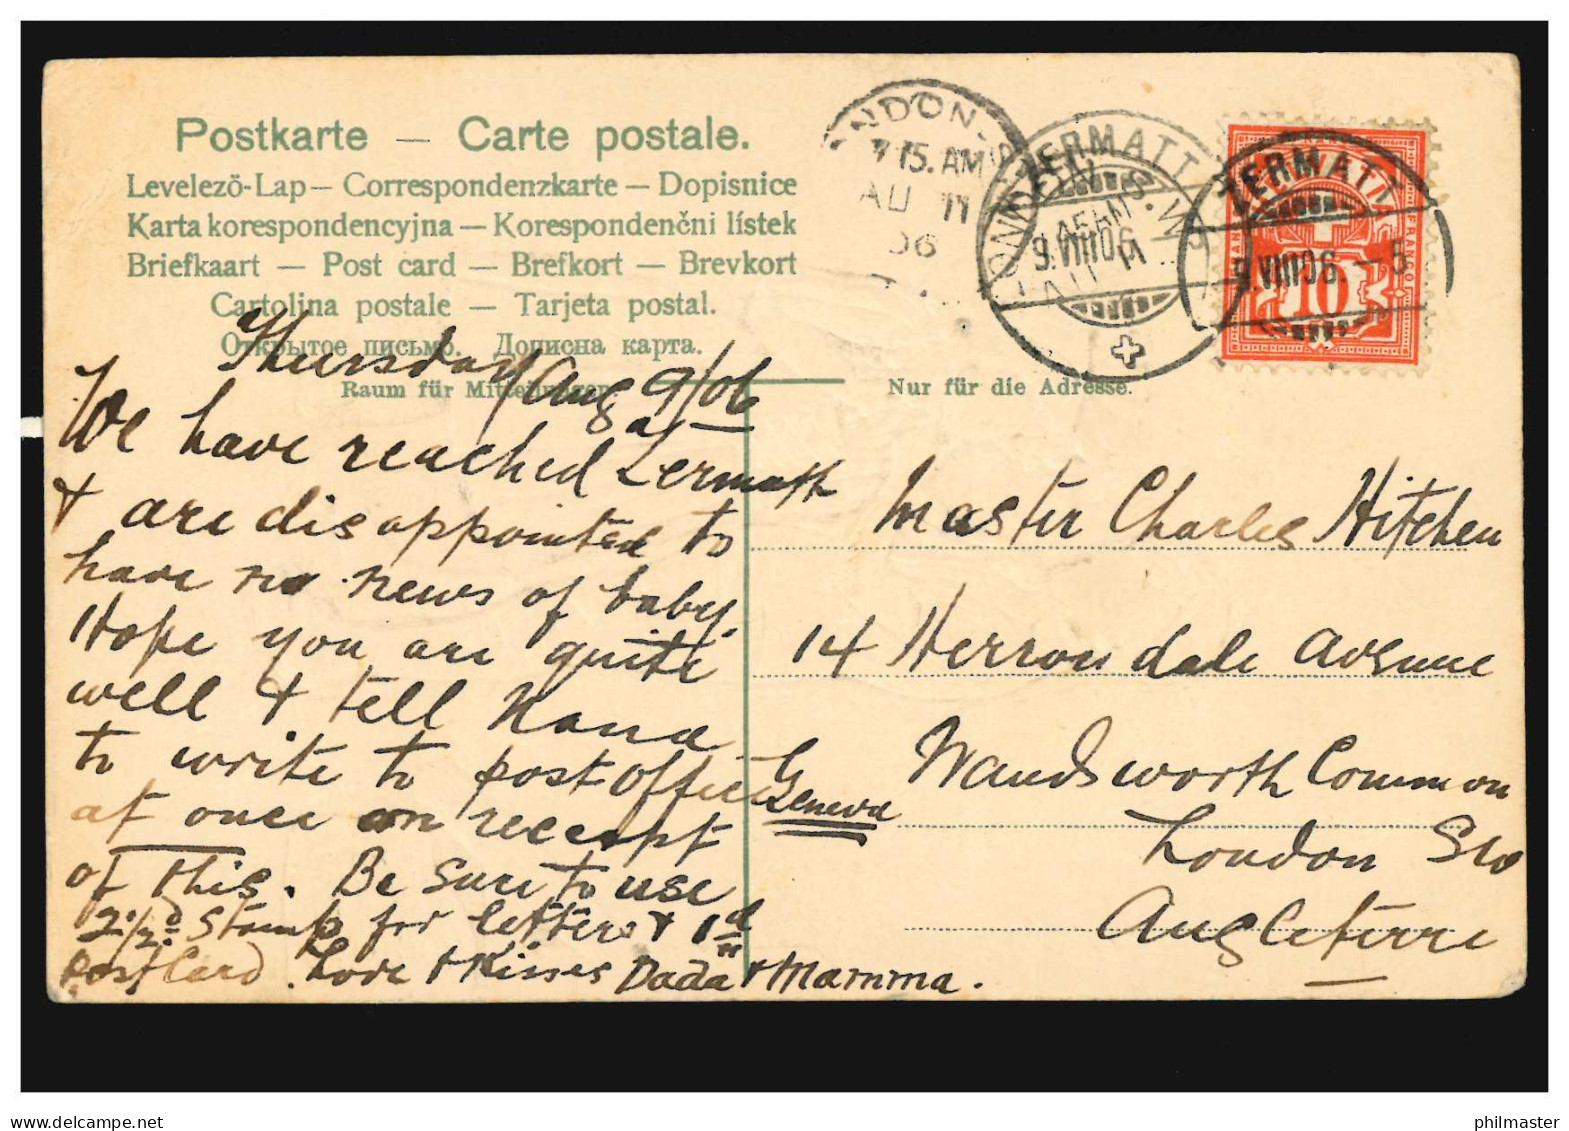 Postkarte — Carte postale.
Levelezö-Lap — Correspondenzkarte — Dopisnice
Karta korespondencyjna — Korespondenční lístek
Briefkaart — Post card — Brefkort — Brevkort
Cartolina postale — Tarjeta postal.
Открытое письмо. Дописна карта.
Raum für Mitteilungen.
Nur für die Adresse.
NDON.
7 15. AM
AU 11
06
LONDON, S.W.
ZERMATT
9.VIII06
ZERMATT
9.VIII06. –5
FRANCO
10
Thursday Aug 9/06
We have reached Zermatt
& are disappointed to
have no news of baby.
Hope you are quite
well & tell Nana
to write to post office
Geneva
at once on receipt
of this. Be sure to use
2 1/2d. stamp for letters & 1d
Post Card. Love & Kisses Dada & Mamma.
Master Charles Hitchen
14 Herrondale Avenue
Wandsworth Common
London SW
Angleterre
delcampe.net
philmaster